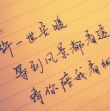 许一世安暖
等到风景都看透
有你陪我看细